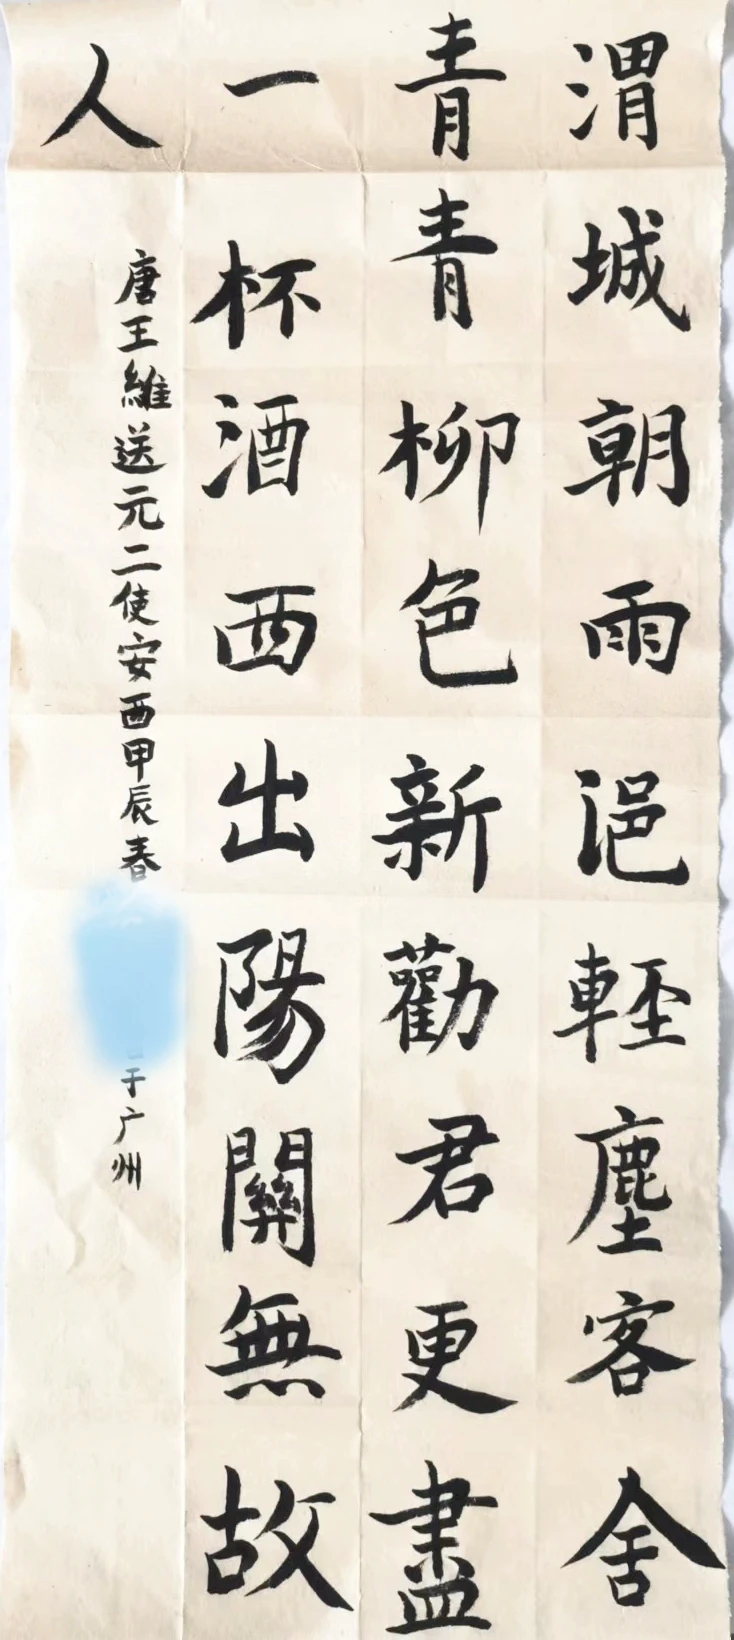 渭城朝雨浥輕塵客舍
青青柳色新勸君更盡
一杯酒西出陽關無故
人
唐王維送元二使安西甲辰春
于广州